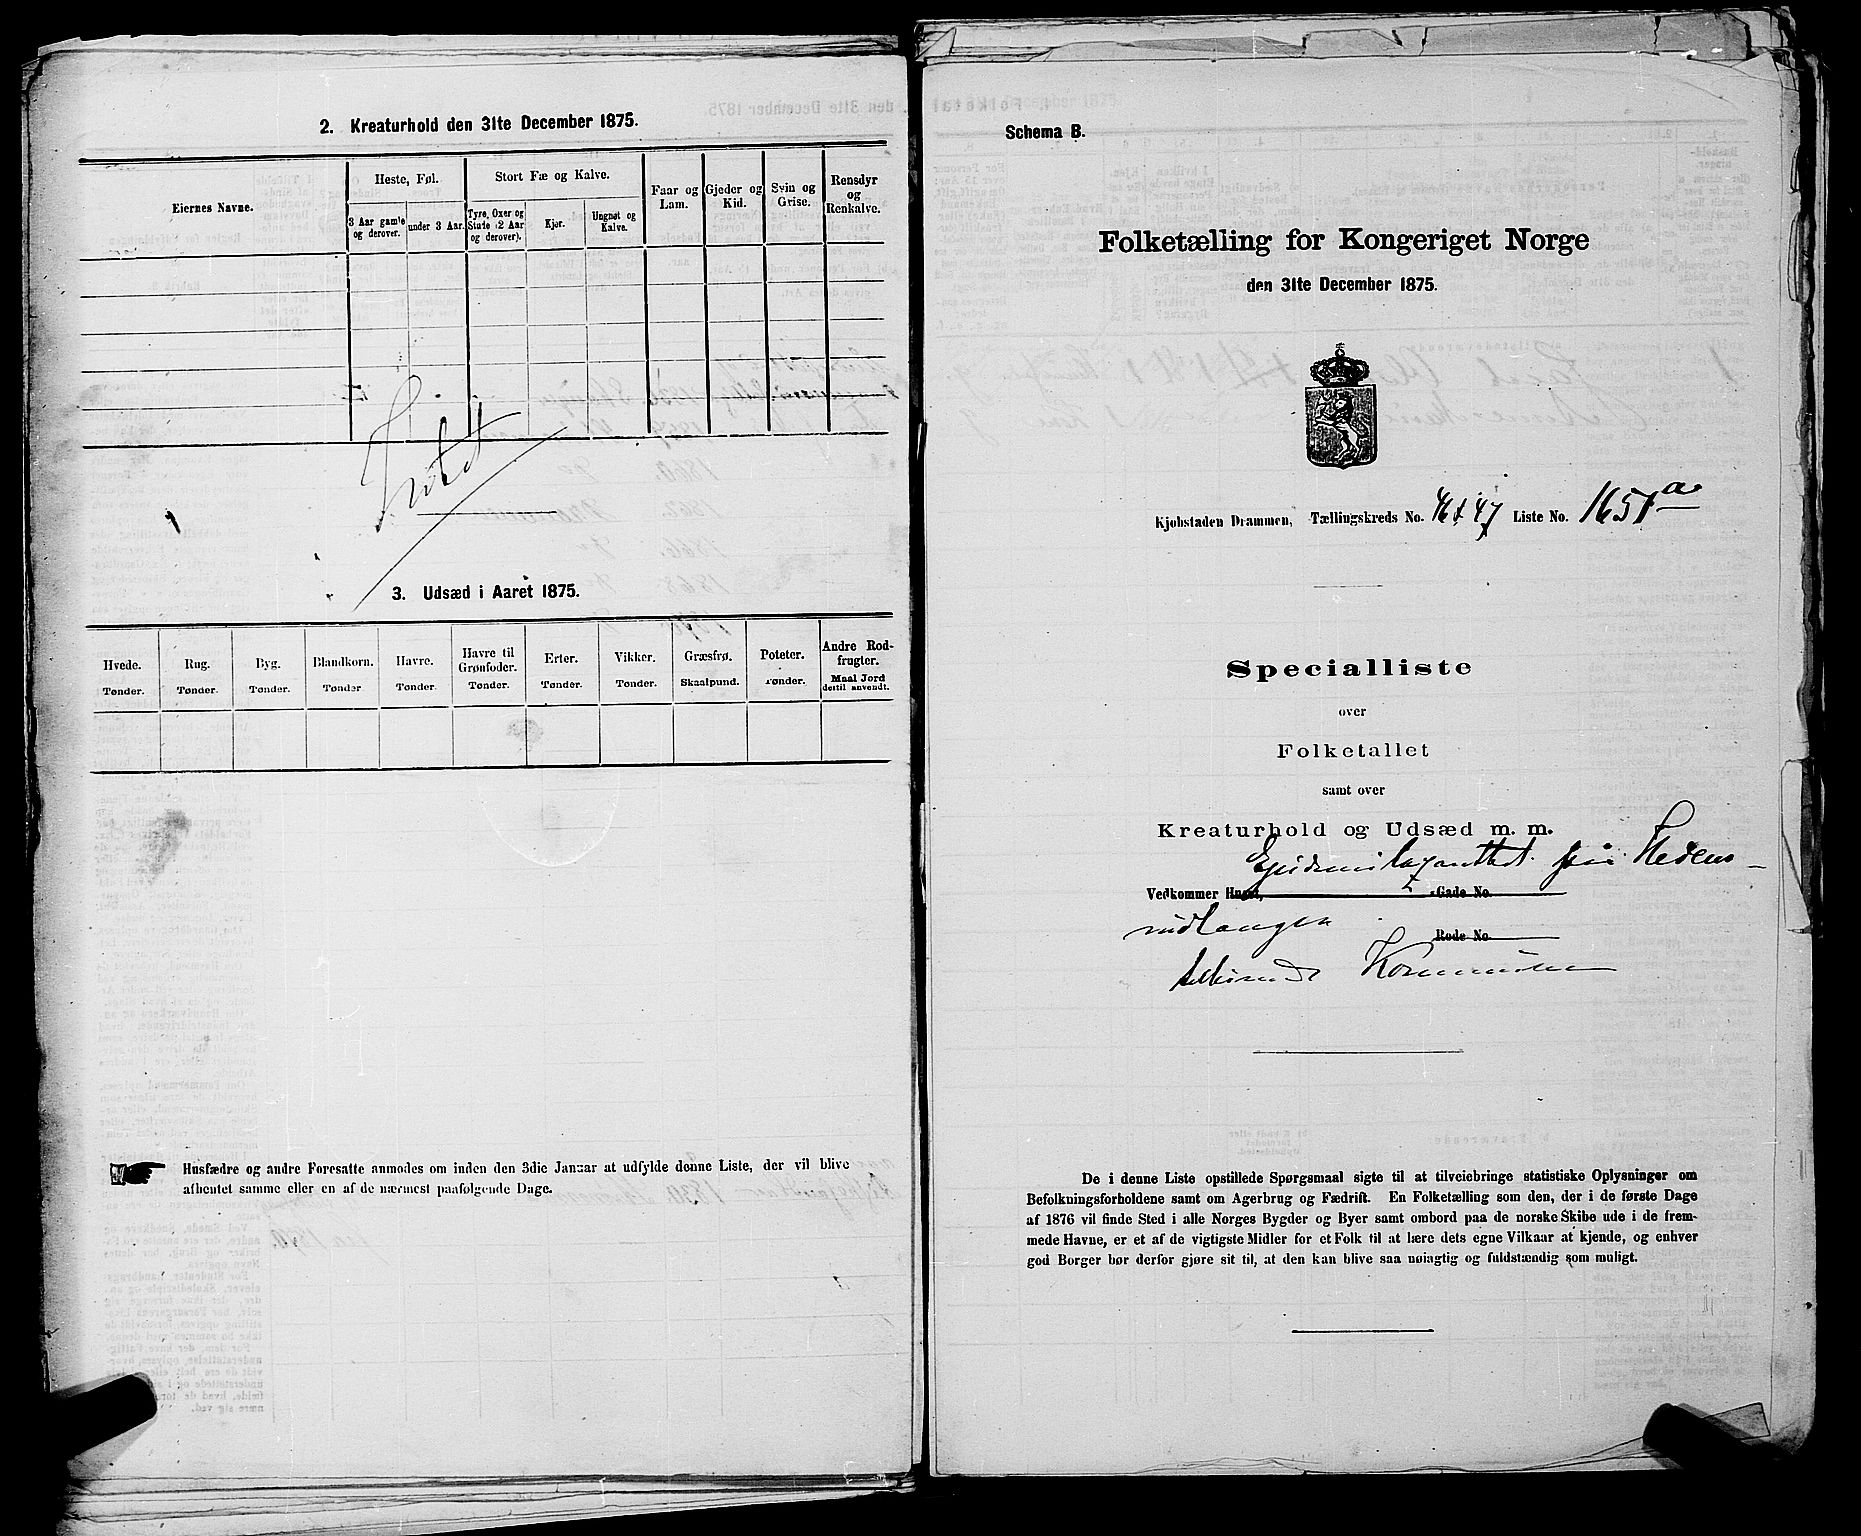 2. Kreaturhold den 31te December 1875.
Eiernes Navne.
Heste, Føl.
Stort Fæ og Kalve.
Faar og Lam.
Gjeder og Kid.
Svin og Grise.
Rensdyr og Renkalve.
3 Aar gamle og derover.
under 3 Aar.
Tyre, Oxer og Stude (2 Aar og derover).
Kjør.
Ungnøt og Kalve.
3. Udsæd i Aaret 1875.
Hvede. Tønder.
Rug. Tønder.
Byg. Tønder.
Blandkorn. Tønder
Havre. Tønder.
Havre til Grønfoder. Tønder.
Erter. Tønder.
Vikker. Tønder.
Græsfrø. Skaalpund.
Poteter. Tønder.
Andre Rodfrugter. Maal Jord dertil anvendt.
Husfædre og andre Foresatte anmodes om inden den 3die Januar at udfylde denne Liste, der vil blive
afhentet samme eller en af de nærmest paafølgende Dage.
Schema B.
Folketælling for Kongeriget Norge
den 31te December 1875.
Kjøbstaden Drammen, Tællingskreds No. 46 & 47 Liste No. 1651a
Specialliste
over
Folketallet
samt over
Kreaturhold og Udsæd m. m.
Vedkommer Huset, Gade No.
Rode No.
tilhørende Kommunen
De i denne Liste opstillede Spørgsmaal sigte til at tilveiebringe statistiske Oplysninger om
Befolkningsforholdene samt om Agerbrug og Fædrift. En Folketælling som den, der i de første Dage
af 1876 vil finde Sted i alle Norges Bygder og Byer samt ombord paa de norske Skibe ude i de frem-
mede Havne, er et af de vigtigste Midler for et Folk til at lære dets egne Vilkaar at kjende, og enhver
god Borger bør derfor gjøre sit til, at den kan blive saa nøiagtig og fuldstændig som muligt.